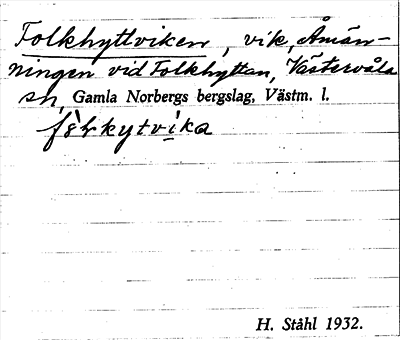 Folkhyttviken, vik, Åmän-
ningen vid Folkhyttan, Västervåla
sn, Gamla Norbergs bergslag, Västm. l.
H. Ståhl 1932.